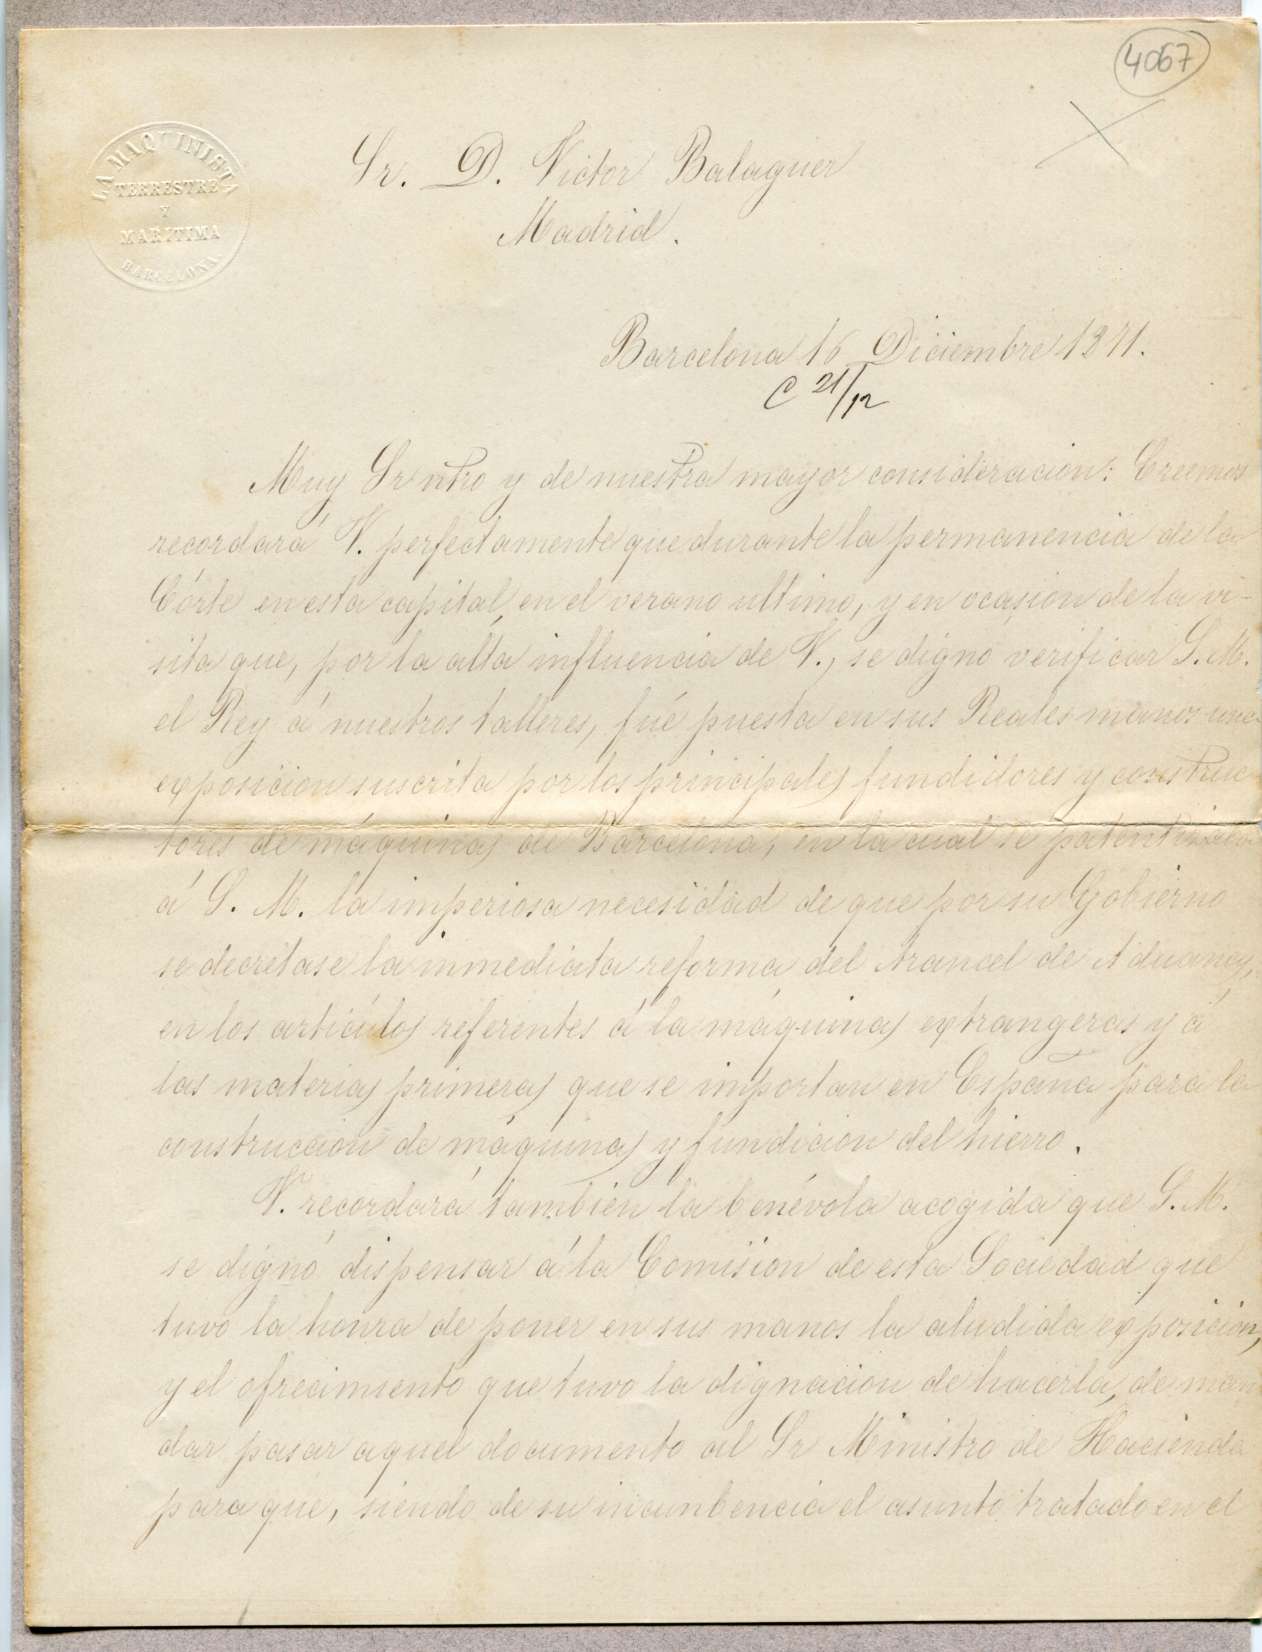 4067
LA MAQUINISTA
TERRESTRE
Y
MARITIMA
BARCELONA
Sr. D. Victor Balaguer
Madrid.
Barcelona 16 Diciembre 1871.
C 21/12
Muy Sr ntro y de nuestra mayor consideracion: Creemos
recordará V. perfectamente que durante la permanencia de la
Córte en esta capital, en el verano ultimo, y en ocasion de la vi-
sita que, por la alta influencia de V., se dignó verificar S. M.
el Rey á nuestros talleres, fué puesta en sus Reales manos una
exposicion suscrita por los principales fundidores y construc-
tores de máquinas de Barcelona, en la cual se patentizaba
á S. M. la imperiosa necesidad de que por su Gobierno
se decretase la inmediata reforma del Arancel de Aduanas,
en los artículos referentes á la máquinas extrangeras y á
las materias primeras que se importan en España para la
construccion de máquinas y fundicion del hierro.
V. recordará tambien la benévola acogida que S. M.
se dignó dispensar á la Comision de esta Sociedad que
tuvo la honra de poner en sus manos la aludida exposicion,
y el ofrecimiento que tuvo la dignacion de hacerla, de man
dar pasar aquel documento al Sr Ministro de Hacienda
para que, siendo de su incumbencia el asunto tratado en el